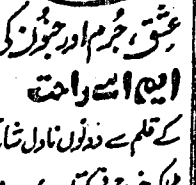 عشق، جُرم اور جنون کی
ایم اے راحت
کے قلم سے دونوں ناول شائع